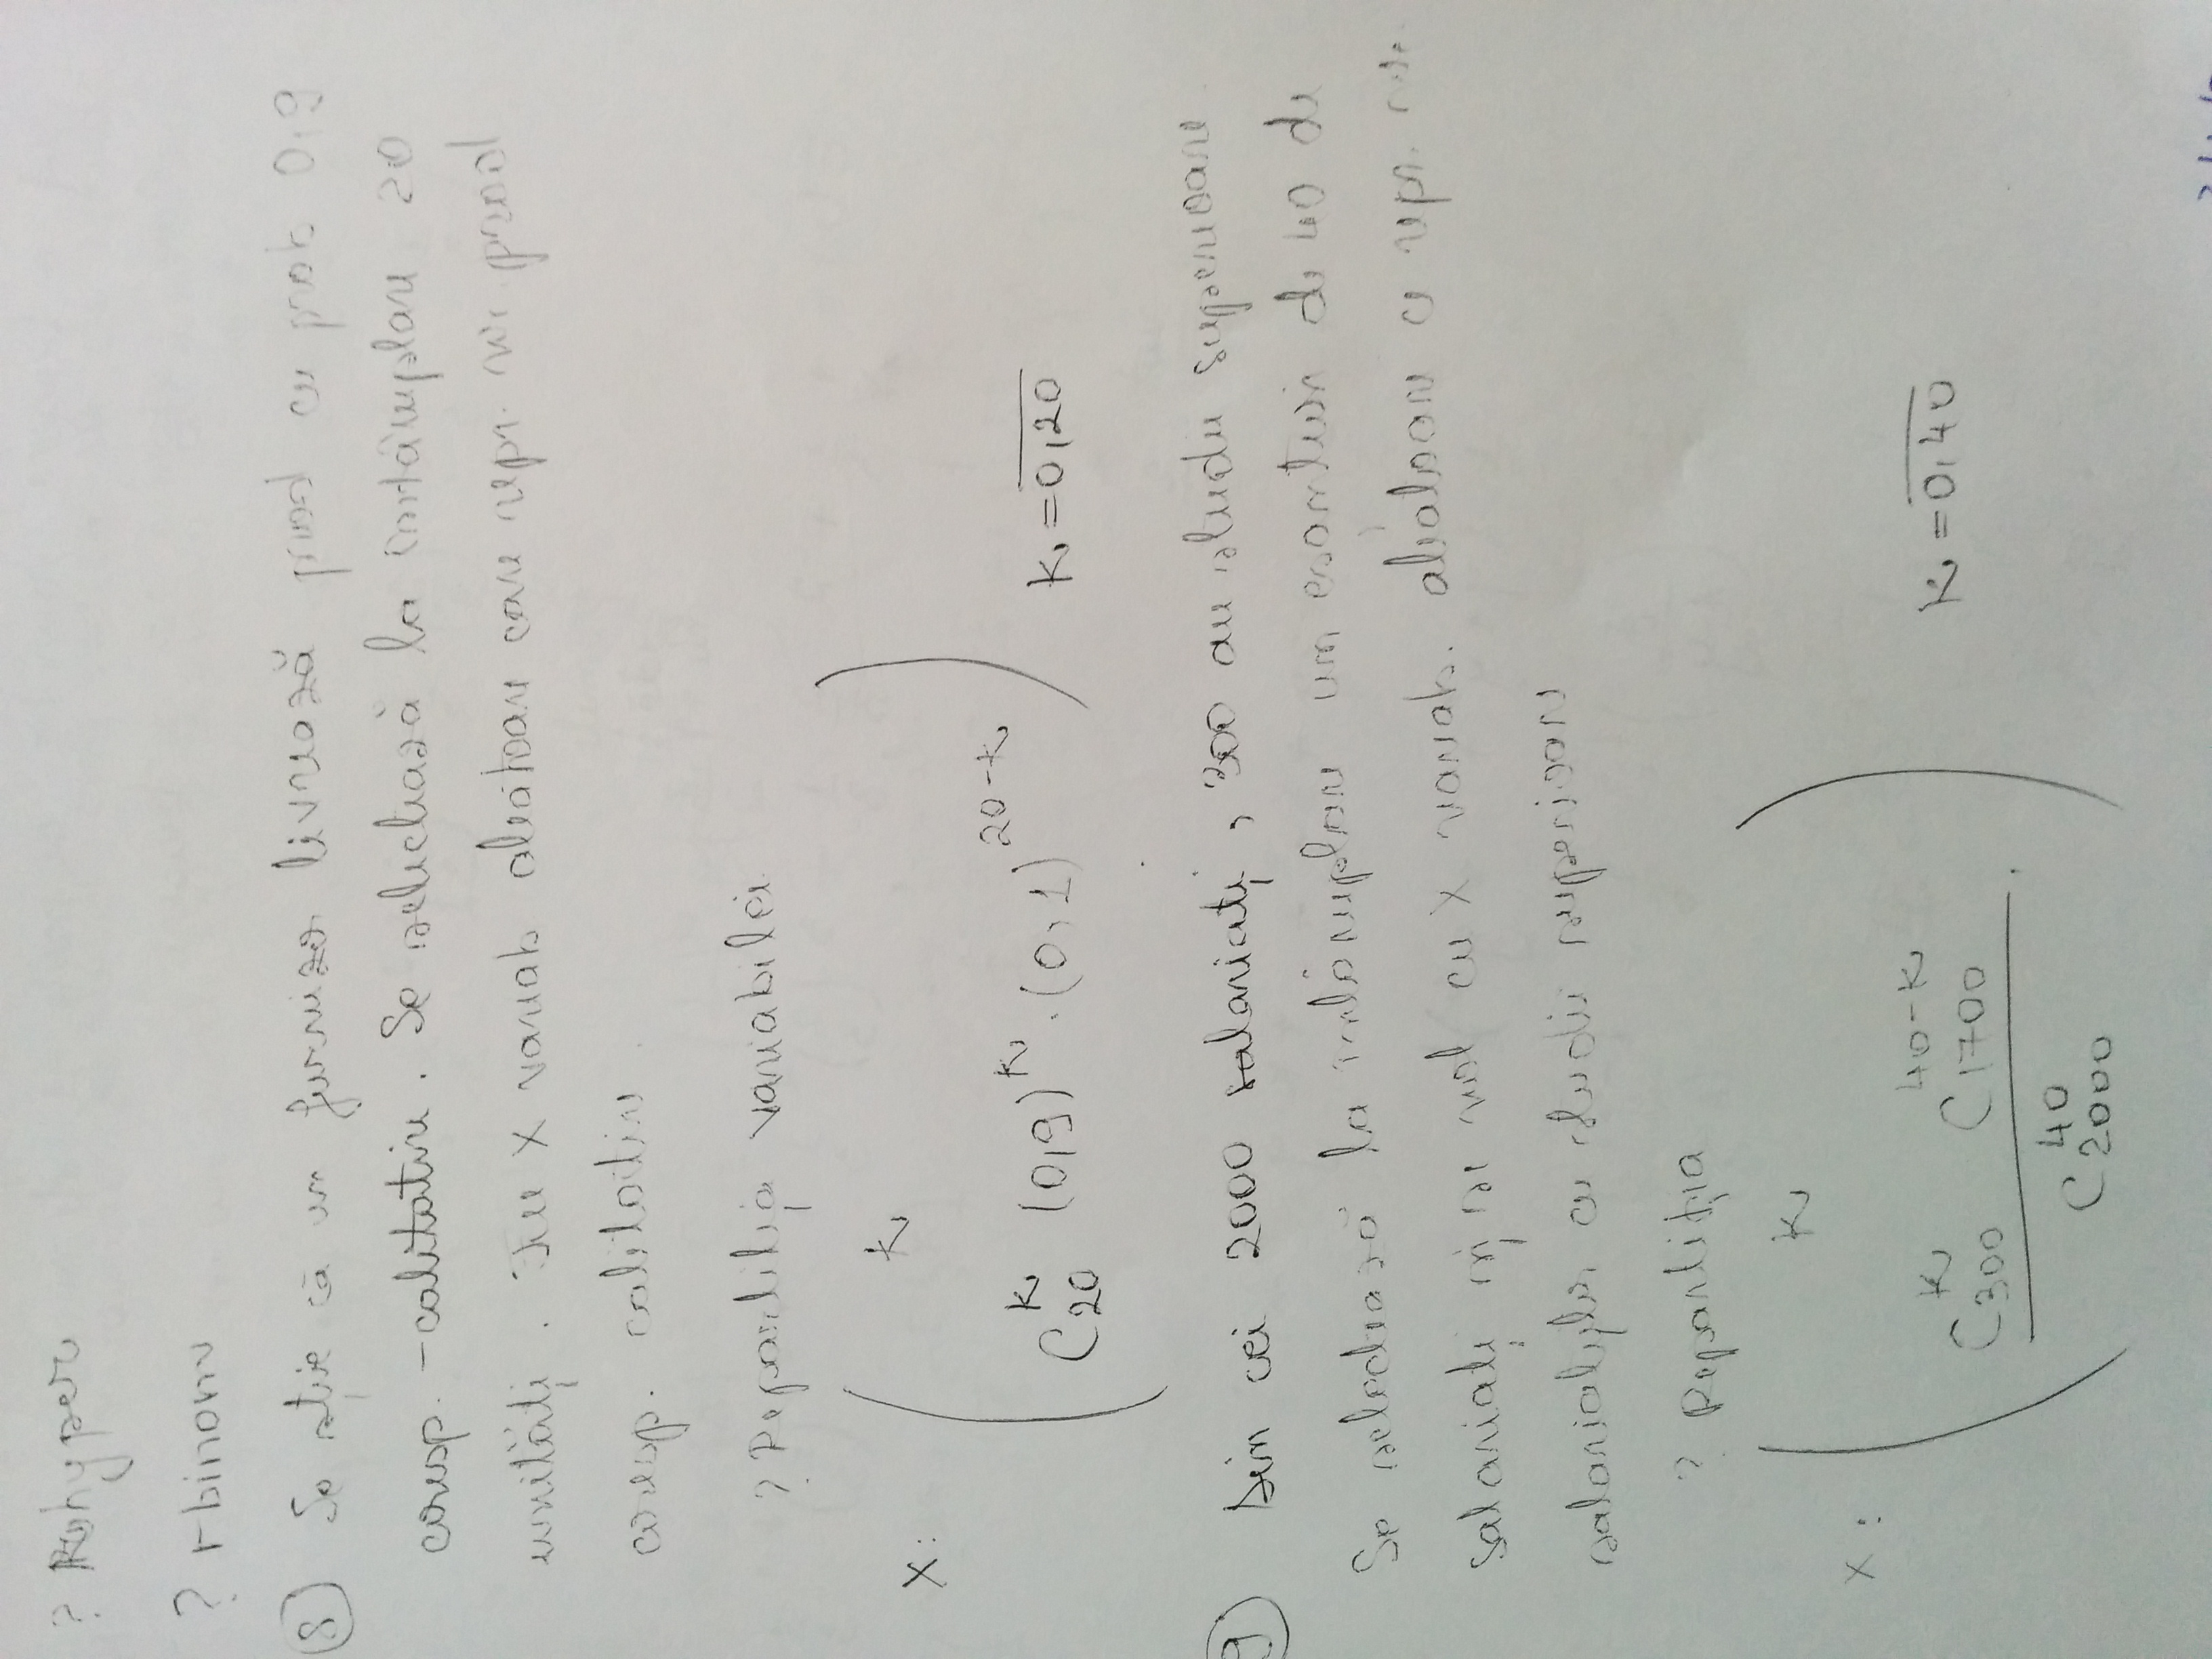 ? Rhyper
? rbinom
⑧ Se știe că un furnizor livrează prod cu prob 0,9
coresp. -calitativ. Se selectează la întâmplare 20
unități. Fie X variab aleatoare care repr. nr. prod
coresp. calitativ.
? Repartiția variabilei
k
X:
C_20^k (0,9)^k · (0,1)^(20-k) k = 0,20
⑨ Din cei 2000 salariați, 300 au studii superioare
Se selectează la întâmplare un eșantion de 40 de
salariați și se not cu X variab. aleatoare ce repr. nr.
salariaților cu studii superioare
? Repartiția
k
X:
C_300^k C_1700^(40-k) k = 0,40
C_2000^40